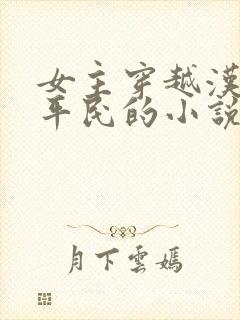 女主穿越漢
平民的小說
月下雲嫣